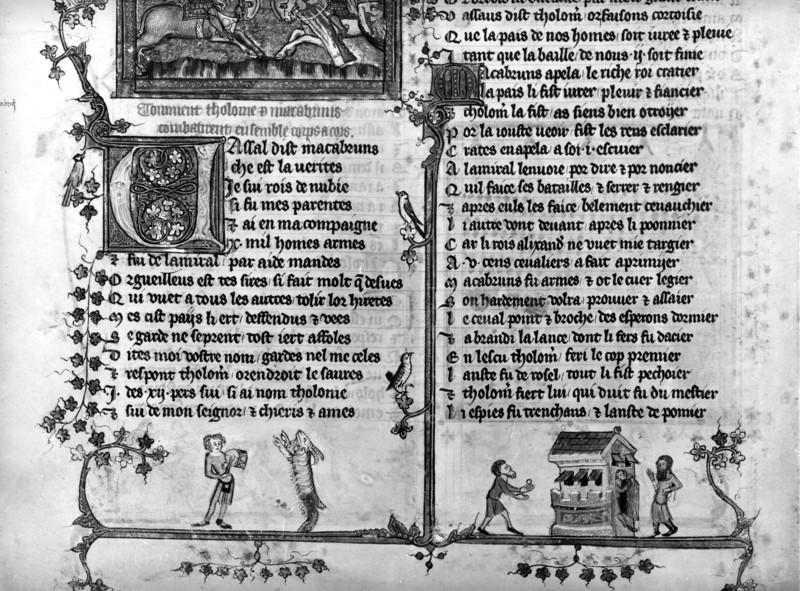 Comment tholome & macabruns
combatirent ensemble corps a cors.
Vassal dist macabruns
che est la verites
Je sui rois de nubie
si fu mes parentes
& ai en ma compaigne
mil homes armes
& fui de lamiral / par aide mandes
Orgueilleus est tes sires / si fait molt q̃ desues
Qui vuet a tous les autres tolir lor hiretes
Mes cist païs li ert / deffendus & vees
Se garde ne seprent / tost iert affoles
Dites moi vostre nom / gardes nel me celes
& respont tholom̃ / orendroit le saures
J. des .xij. pers sui / si ai nom tholome
& sui de mon seignor / & chieris & ames
Vassaus dist tholom̃ / or faisons cortoisie
Que la pais de nos homes / soit iuree & plevie
tant que la baille / de nous .ij. soit finie
Macabruns apela / le riche roi cratier
la pais li fist iurer / plevir & fiancier
& tholom̃ la fist / as siens bien otroijer
Por la iouste veoir / fist les rens esclarier
Crates en apela / a soi .i. escuier
A lamiral lenvoie / por dire & por noncier
Quil face ses batailles / & serrer & rengier
& apres euls les face / belement cevauchier
li autre dont devant / apres li poonnier
Car li rois alixand̃ / ne vuet mie targier
A .v. cens cevaliers / a fait aprimijer
Macabruns fu armes / & ot le cuer legier
Son hardement volra / prouver & assaier
le ceval point & broche / des esperons dormier
& a brandi la lance / dont li fers fu dacier
En lescu tholom̃ / feri le cop premier
lanste fu de rosel / tout li fist pechoier
& tholom̃ fiert lui / qui duit fu du mestier
li espies fu trenchans / & lanste de pomier